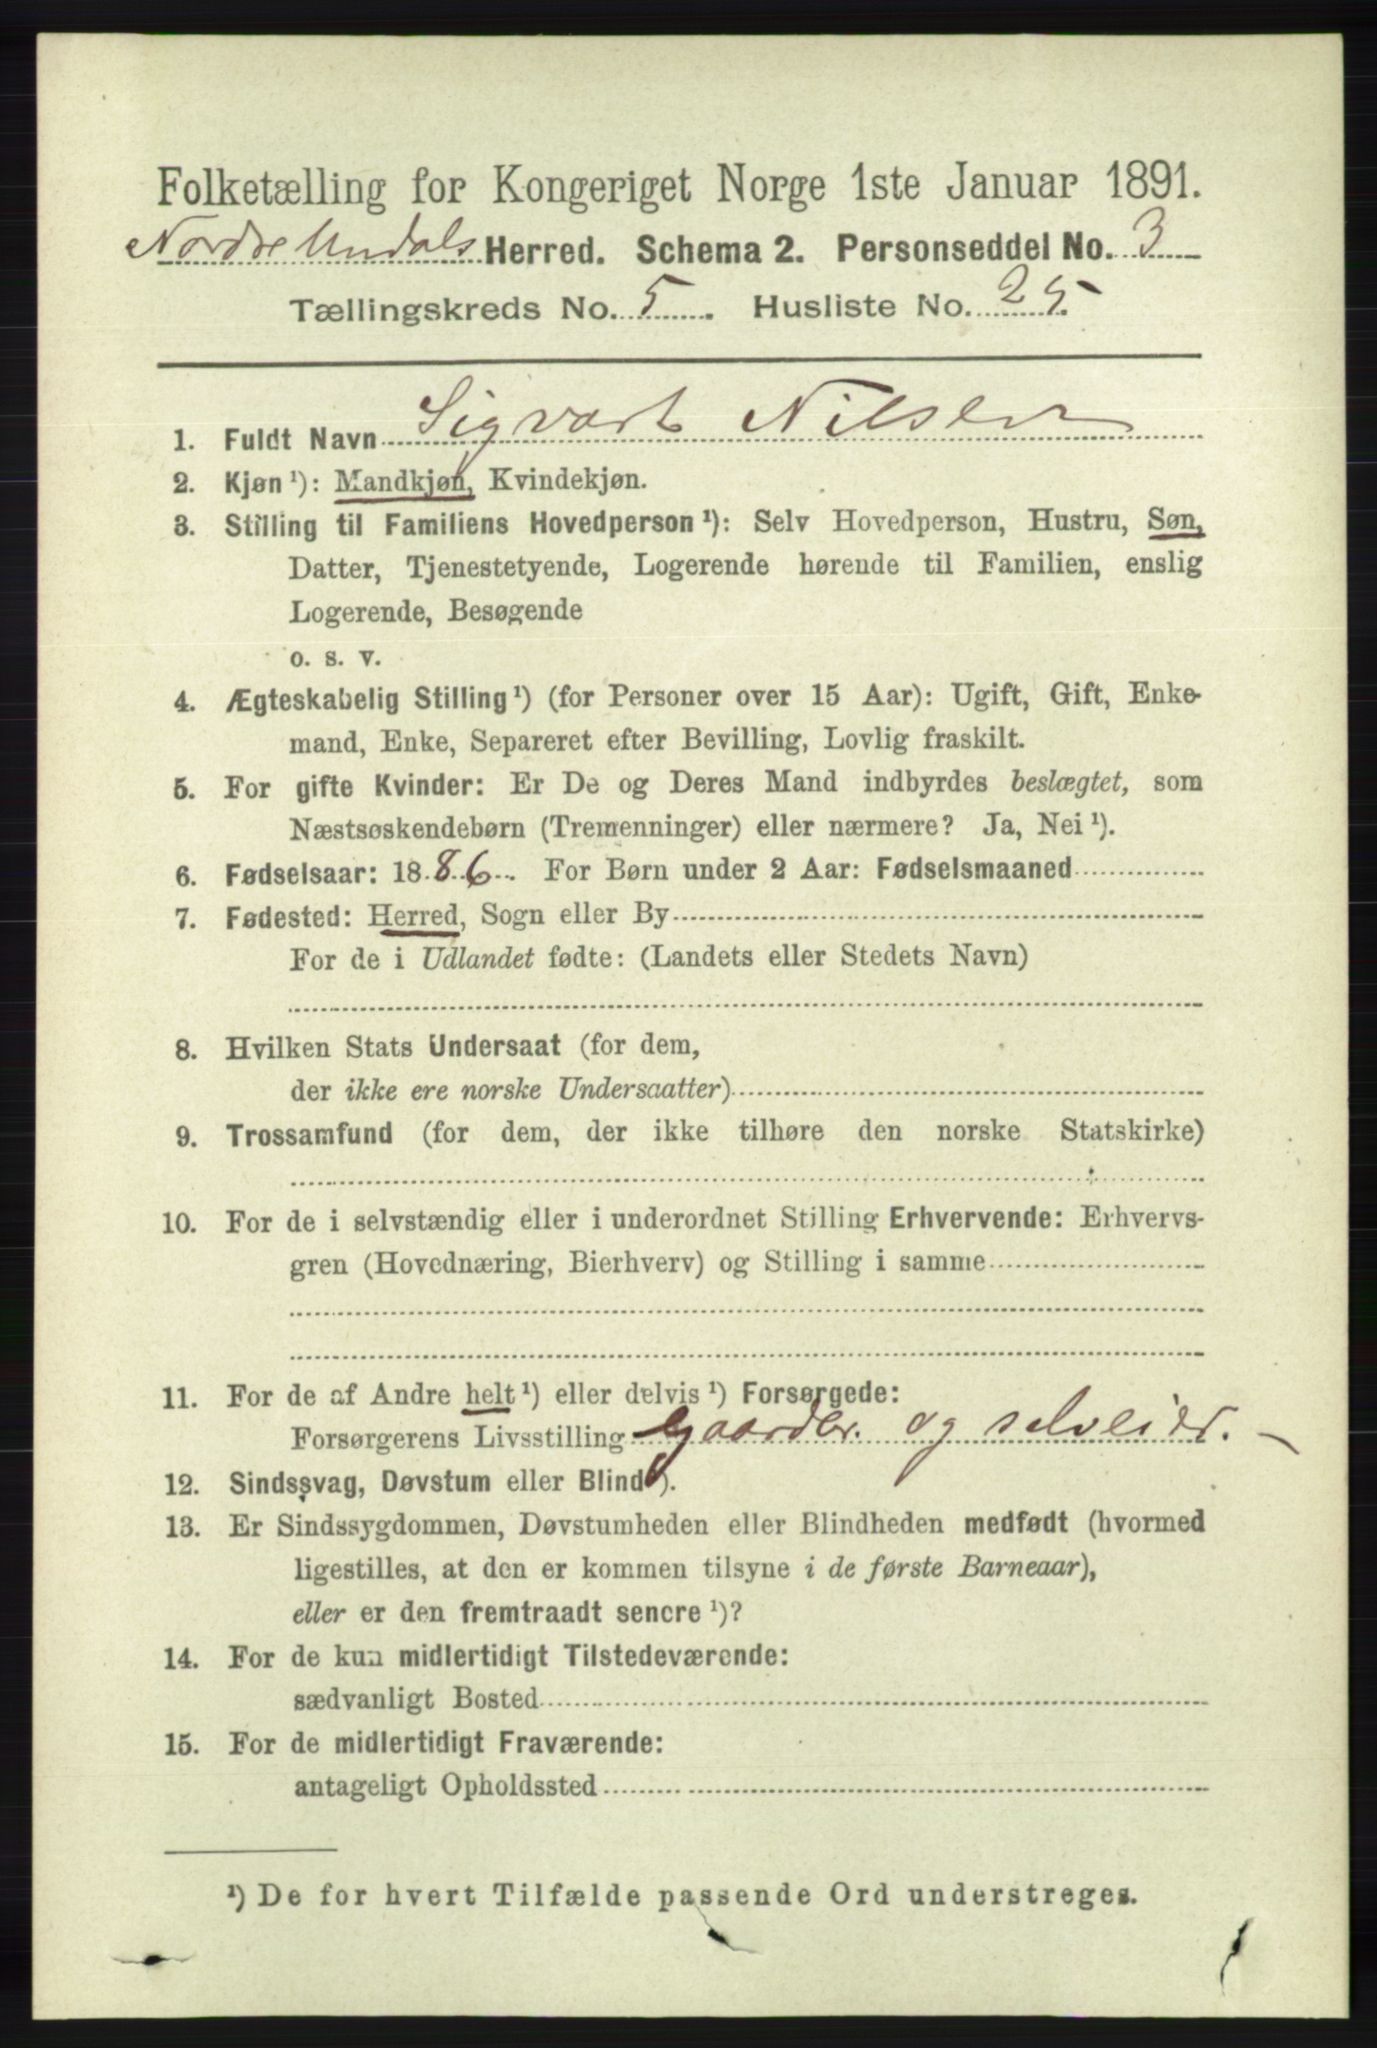 Folketælling for Kongeriget Norge 1ste Januar 1891.
Nordre Undals Herred. Schema 2. Personseddel No. 3
Tællingskreds No. 5. Husliste No. 25.
1. Fuldt Navn Sigvart Nilsen
2. Kjøn ¹): Mandkjøn, Kvindekjøn.
3. Stilling til Familiens Hovedperson ¹): Selv Hovedperson, Hustru, Søn,
Datter, Tjenestetyende, Logerende hørende til Familien, enslig
Logerende, Besøgende
o. s. v.
4. Ægteskabelig Stilling ¹) (for Personer over 15 Aar): Ugift, Gift, Enke-
mand, Enke, Separeret efter Bevilling, Lovlig fraskilt.
5. For gifte Kvinder: Er De og Deres Mand indbyrdes beslægtet, som
Næstsøskendebørn (Tremenninger) eller nærmere? Ja, Nei ¹).
6. Fødselsaar: 1886. For Børn under 2 Aar: Fødselsmaaned
7. Fødested: Herred, Sogn eller By
For de i Udlandet fødte: (Landets eller Stedets Navn)
8. Hvilken Stats Undersaat (for dem,
der ikke ere norske Undersaatter)
9. Trossamfund (for dem, der ikke tilhøre den norske Statskirke)
10. For de i selvstændig eller i underordnet Stilling Erhvervende: Erhvervs-
gren (Hovednæring, Bierhverv) og Stilling i samme
11. For de af Andre helt ¹) eller delvis ¹) Forsørgede:
Forsørgerens Livsstilling Gaardbr. og selveier. -
12. Sindssvag, Døvstum eller Blind ¹).
13. Er Sindssygdommen, Døvstumheden eller Blindheden medfødt (hvormed
ligestilles, at den er kommen tilsyne i de første Barneaar),
eller er den fremtraadt senere ¹)?
14. For de kun midlertidigt Tilstedeværende:
sædvanligt Bosted
15. For de midlertidigt Fraværende:
antageligt Opholdssted
¹) De for hvert Tilfælde passende Ord understreges.